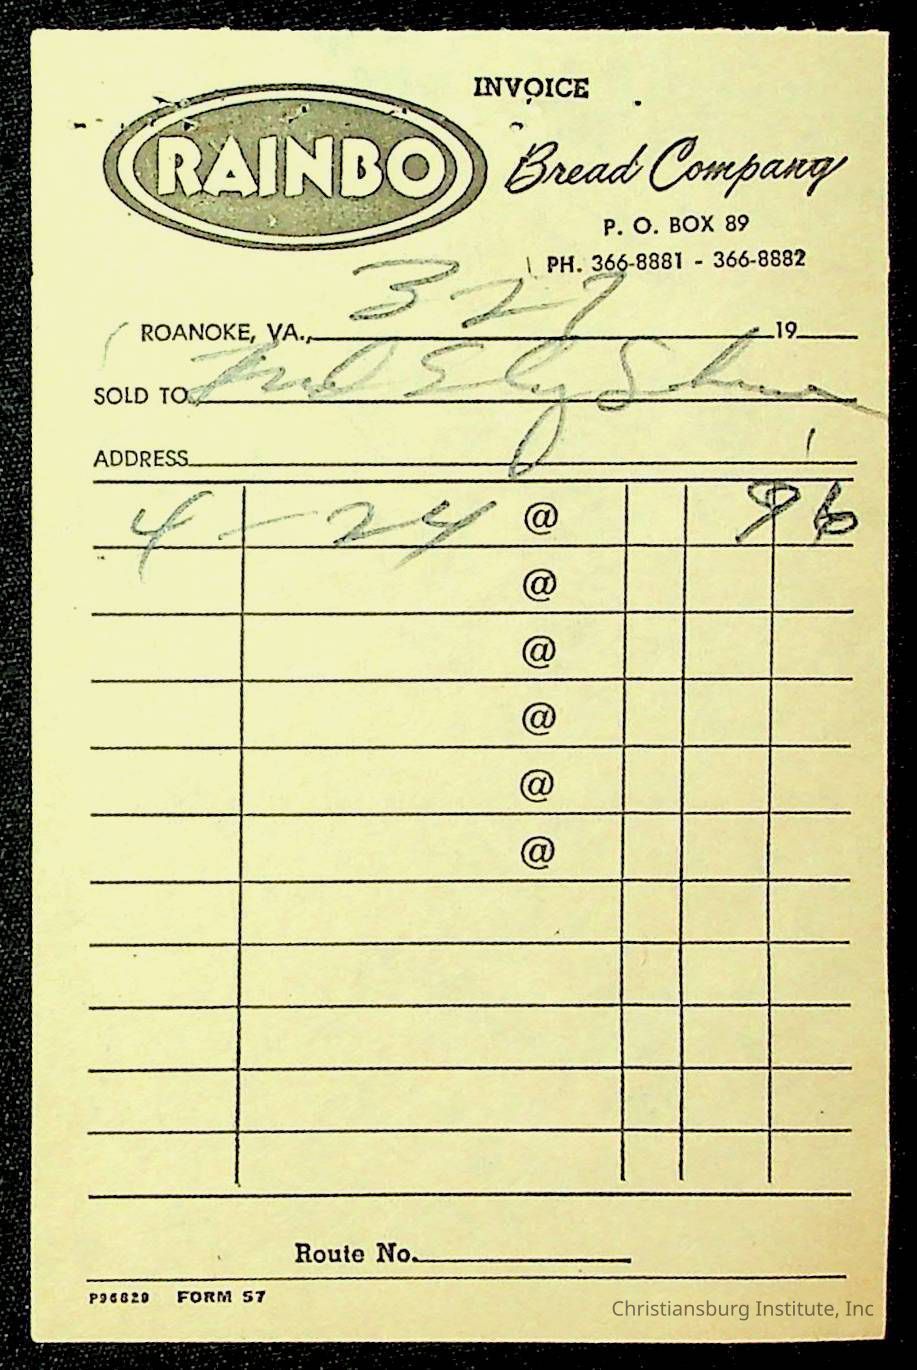 INVOICE
RAINBO
Bread Company
P. O. BOX 89
PH. 366-8881 - 366-8882
3 27
ROANOKE, VA., 19
SOLD TO
ADDRESS
4 - 24 @ 96
@
@
@
@
@
Route No.
P96820 FORM 57
Christiansburg Institute, Inc